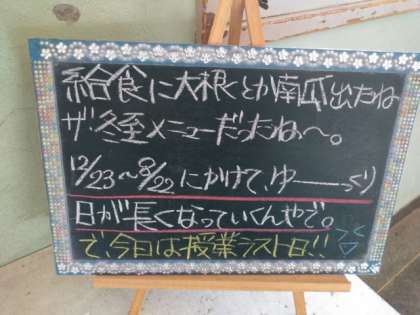 給食に大根とか南瓜出たね
ザ・冬至メニューだったね〜。
12/23〜8/22にかけて、ゆーーっくり
日が長くなっていくんやで。
で、今日は授業ラスト日!!